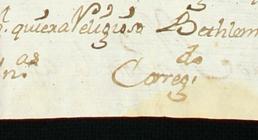 quiera Religioso Bethlem
n.as Corregi.do